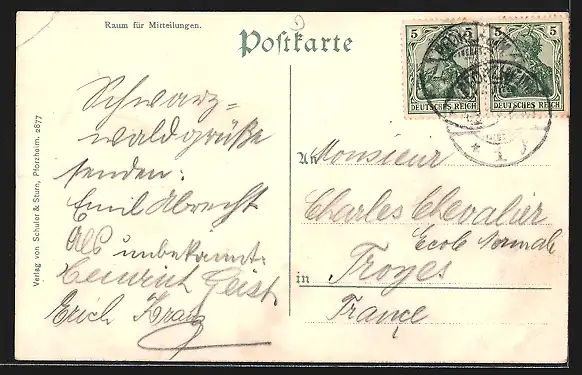 Raum für Mitteilungen.
Postkarte
5 5
DEUTSCHES REICH
5 5
DEUTSCHES REICH
Schwarz=
waldgrüße
senden:
Emil Albrecht
Als unbekannt:
Heinrich Geist
Erich
Verlag von Schuler & Sturn, Pforzheim. 2877
An Monsieur
Charles Chevalier
Ecole Normale
in Troyes
France